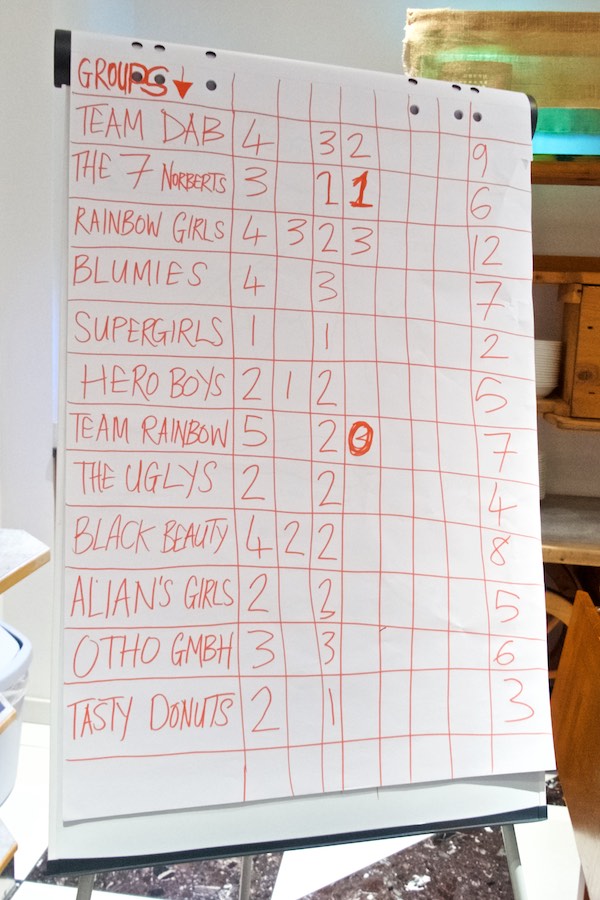 GROUPS
TEAM DAB 4 3 2 9
THE 7 NORBERTS 3 2 1 6
RAINBOW GIRLS 4 3 2 3 12
BLUMIES 4 3 7
SUPERGIRLS 1 1 2
HERO BOYS 2 1 2 5
TEAM RAINBOW 5 2 0 7
THE UGLYS 2 2 4
BLACK BEAUTY 4 2 2 8
ALIAN'S GIRLS 2 3 5
OTHO GMBH 3 3 6
TASTY DONUTS 2 1 3